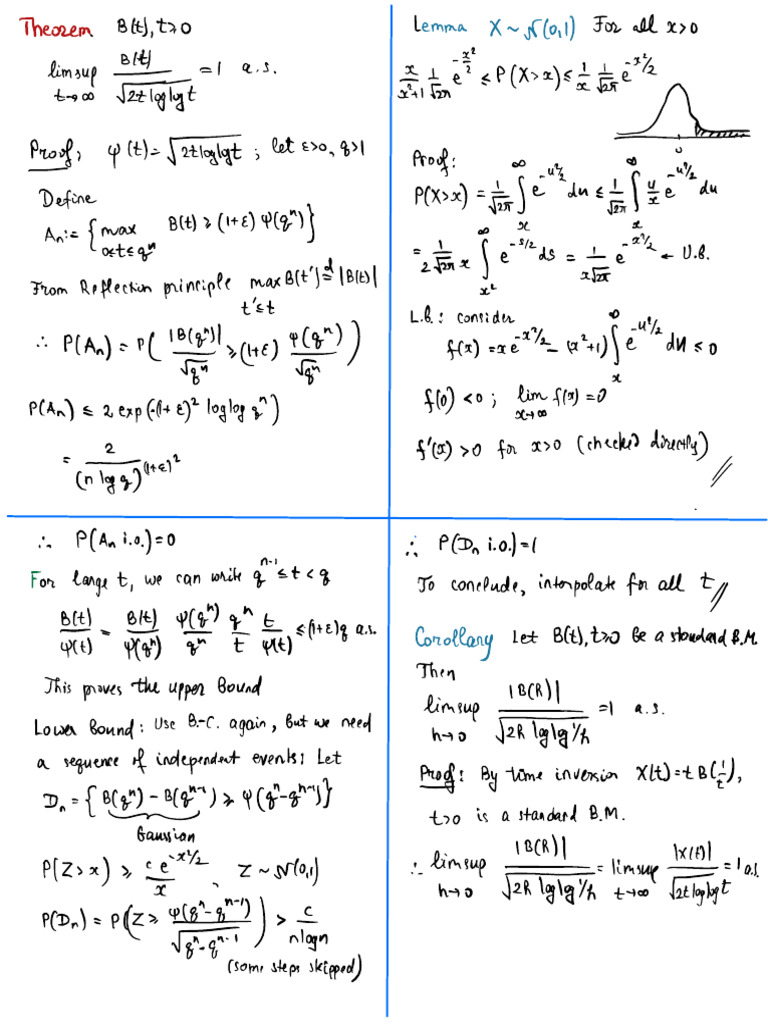 Theorem B(t), t≥0
limsup_{t→∞} B(t)/√(2t loglog t) = 1 a.s.
Proof: ψ(t) = √(2t loglog t) ; let ε>0, q>1
Define
A_n := { max_{0≤t≤q^n} B(t) ≥ (1+ε) ψ(q^n) }
From Reflection principle max_{t'≤t} B(t') =^d |B(t)|
∴ P(A_n) = P( |B(q^n)|/√(q^n) ≥ (1+ε) ψ(q^n)/√(q^n) )
P(A_n) ≤ 2 exp(-(1+ε)^2 loglog q^n)
= 2/(n log q)^{(1+ε)^2}
Lemma X ~ N(0,1) For all x>0
x/(x^2+1) 1/√(2π) e^{-x^2/2} ≤ P(X>x) ≤ 1/x 1/√(2π) e^{-x^2/2}
0
Proof:
P(X>x) = 1/√(2π) ∫_x^∞ e^{-u^2/2} du ≤ 1/√(2π) ∫_x^∞ u/x e^{-u^2/2} du
= 1/(2√(2π) x) ∫_{x^2}^∞ e^{-s/2} ds = 1/(x√(2π)) e^{-x^2/2} ← U.B.
L.B.: consider
f(x) = x e^{-x^2/2} - (x^2+1) ∫_x^∞ e^{-u^2/2} du ≤ 0
f(0) < 0 ; lim_{x→∞} f(x) = 0
f'(x) > 0 for x>0 (checked directly) //
∴ P(A_n i.o.) = 0
For large t, we can write q^{n-1} ≤ t < q
B(t)/ψ(t) = B(t)/ψ(q^n) ψ(q^n)/q^n q^n/t t/ψ(t) ≤ (1+ε)q a.s.
This proves the upper Bound
Lower Bound: Use B.-C. again, But we need
a sequence of independent events: Let
D_n = { B(q^n) - B(q^{n-1}) ≥ ψ(q^n - q^{n-1}) }
Gaussian
P(Z>x) ≥ c e^{-x^2/2}/x , Z ~ N(0,1)
P(D_n) = P( Z ≥ ψ(q^n - q^{n-1})/√(q^n - q^{n-1}) ) > c/(n log n)
(some steps skipped)
∴ P(D_n i.o.) = 1
To conclude, interpolate for all t //
Corollary Let B(t), t≥0 Be a standard B.M.
Then
limsup_{h→0} |B(h)|/√(2h loglog 1/h) = 1 a.s.
Proof: By time inversion X(t) = t B(1/t),
t>0 is a standard B.M.
∴ limsup_{h→0} |B(h)|/√(2h loglog 1/h) = limsup_{t→∞} |X(t)|/√(2t loglog t) = 1 a.s.